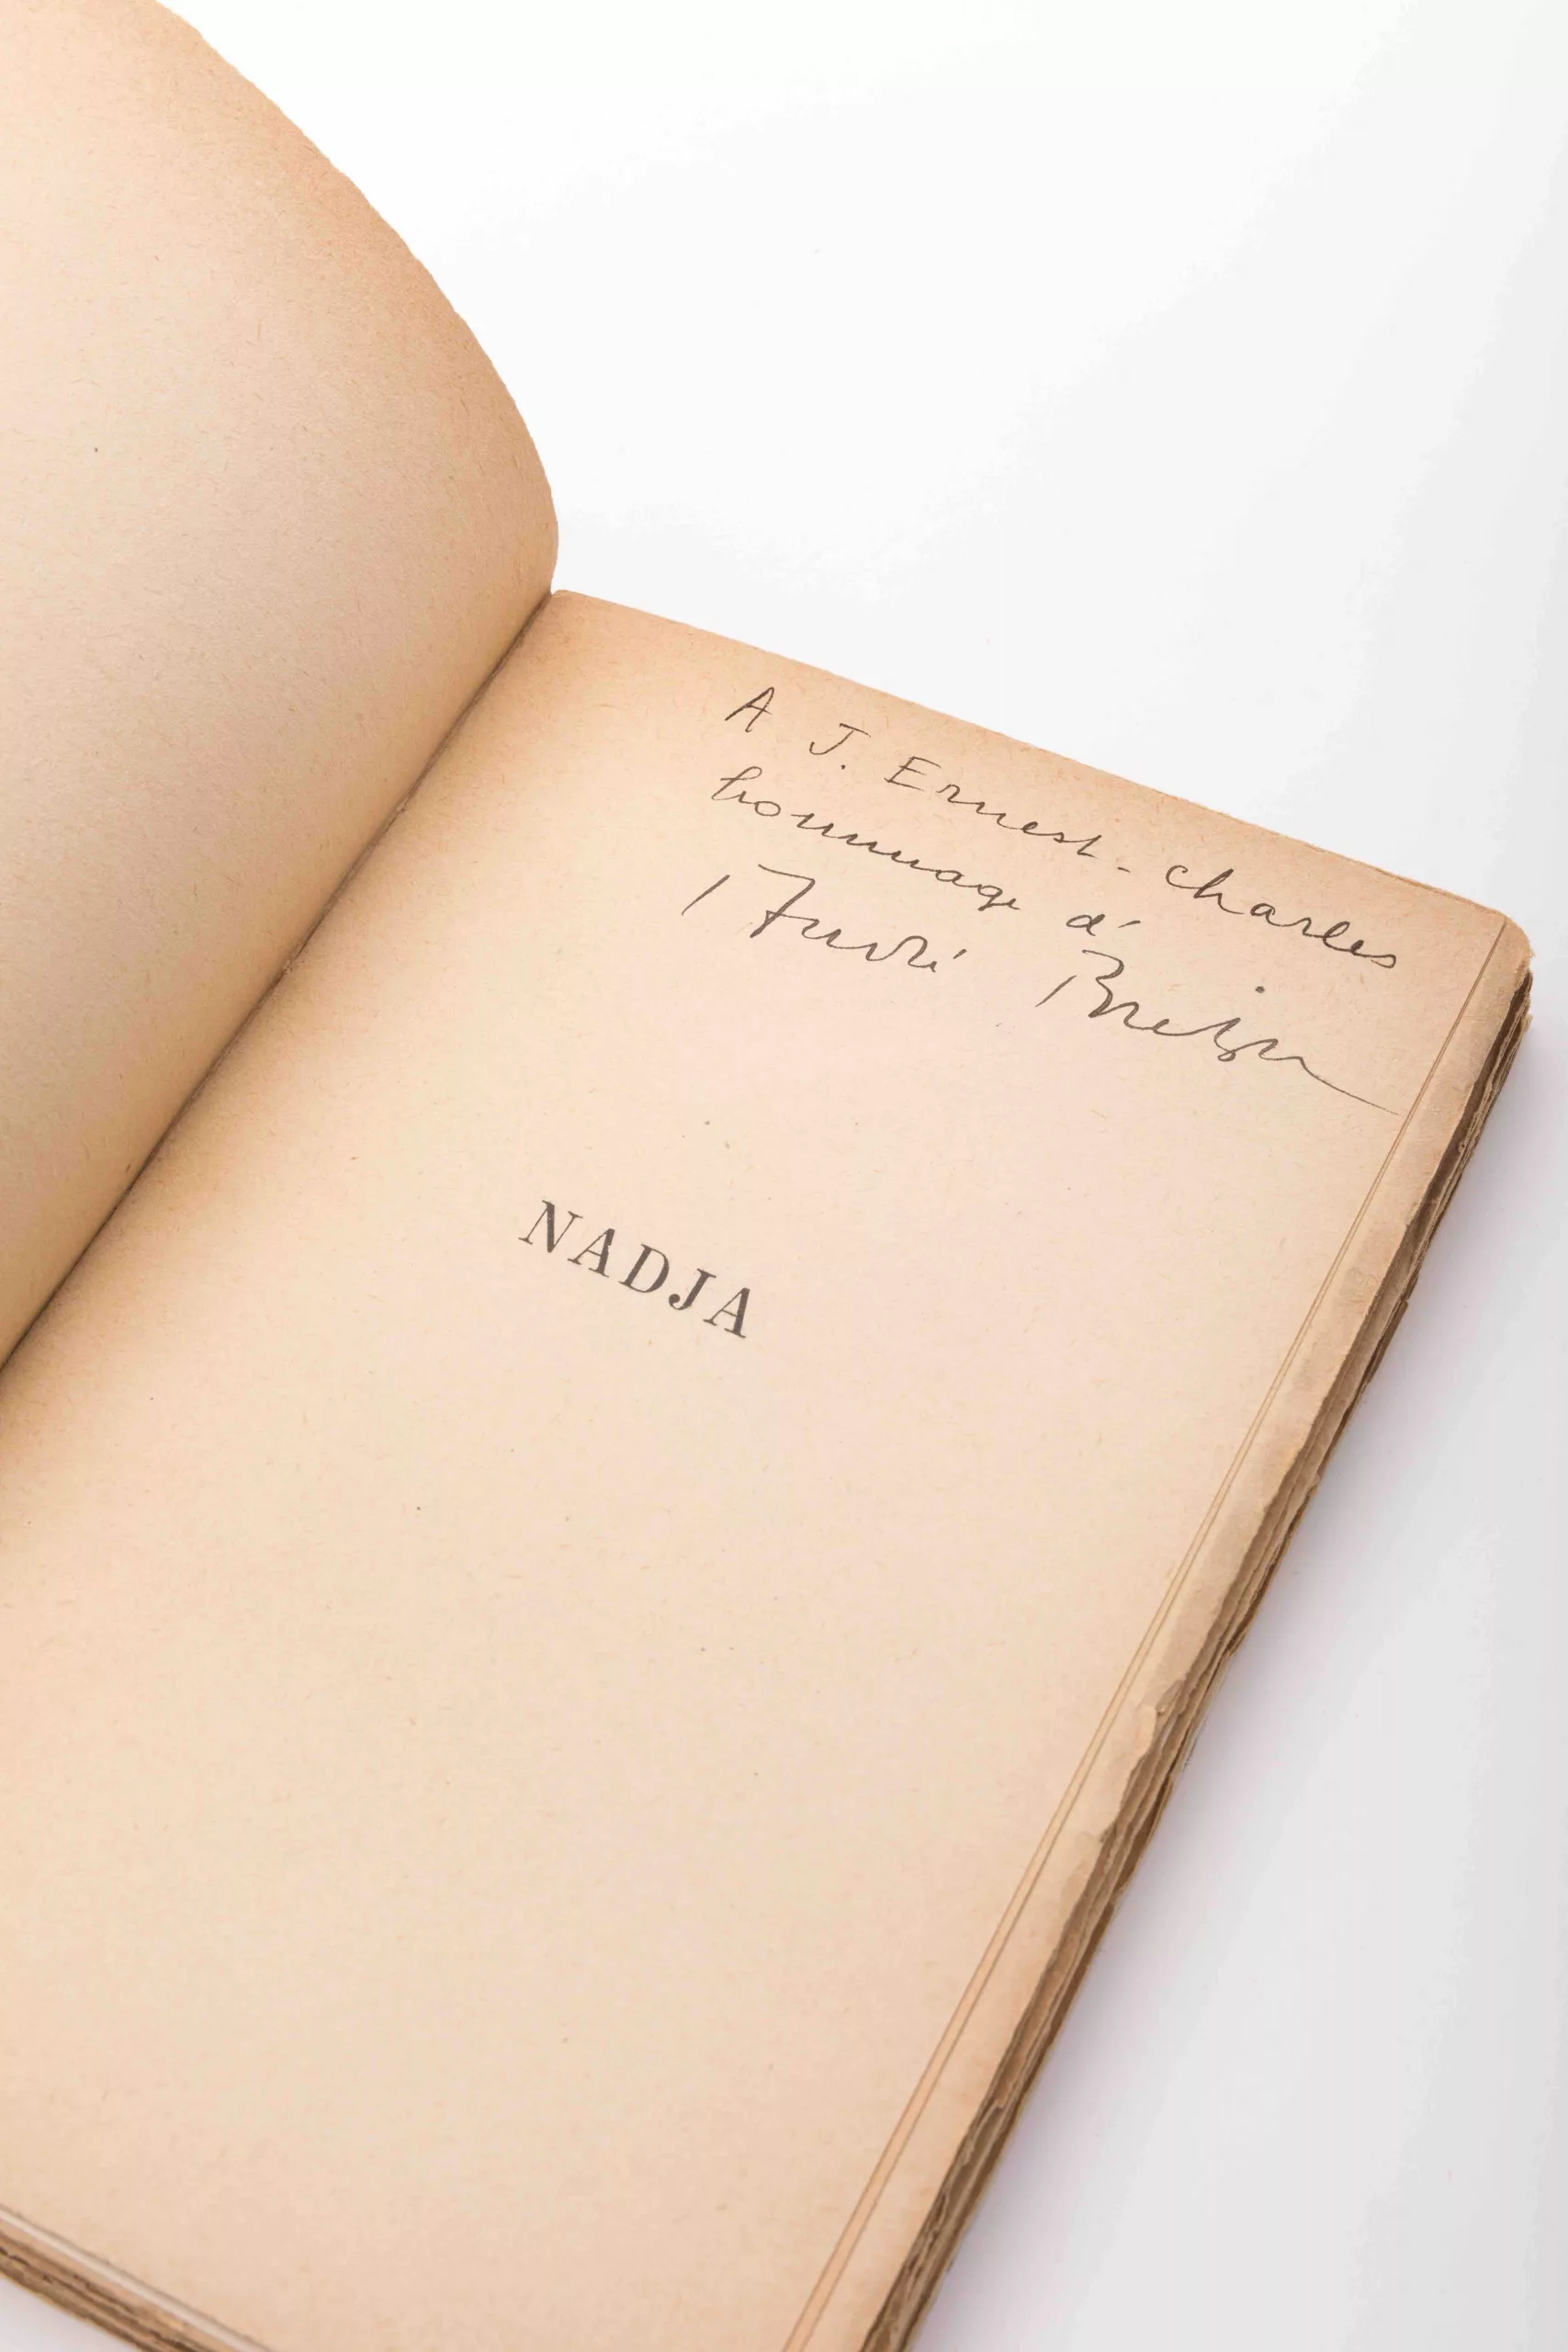 A J. Ernest-Charles
hommage d'
André Breton
NADJA